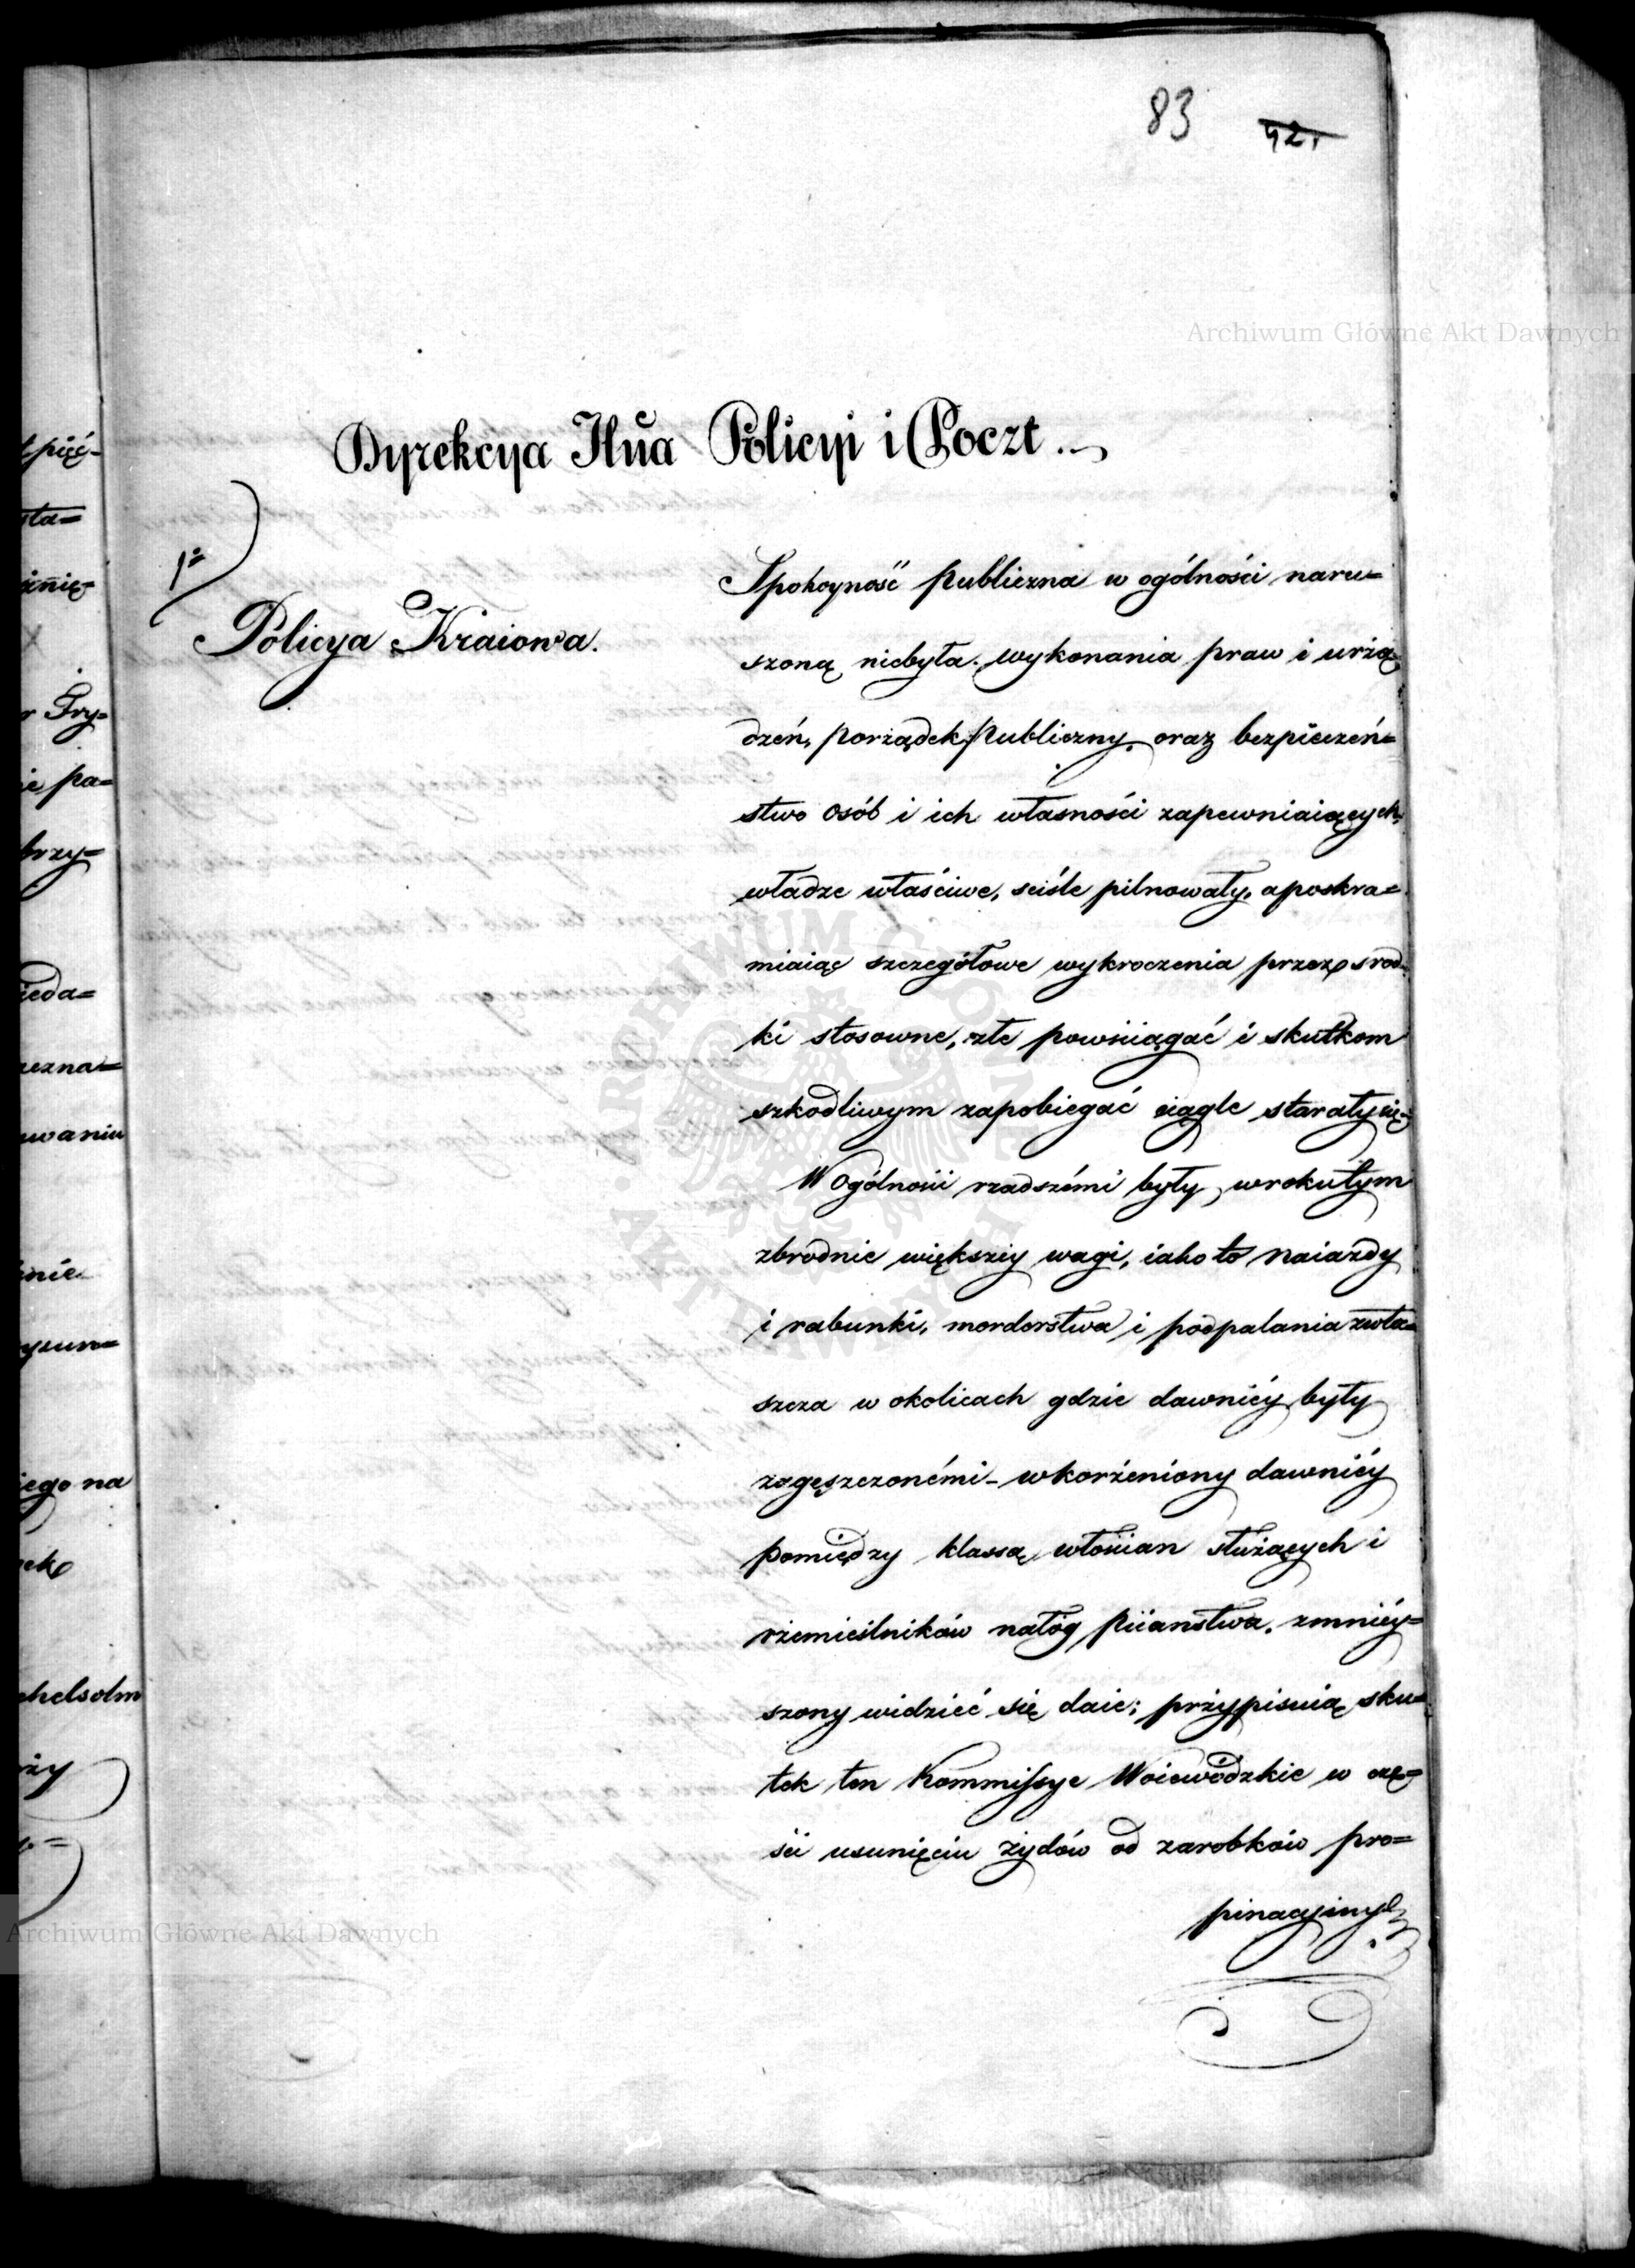 83 42.
Archiwum Główne Akt Dawnych
Dyrekcya IIga Policyi i Poczt.
1o
Policya Kraiowa.
Spokoyność publiczna w ogólności naru=
szoną niebyła. wykonania praw i urzą
dzeń, porządek publiczny, oraz bezpieczeń=
stwo osób i ich własności zapewniaiących,
władze właściwe, sciśle pilnowały, a poskra=
miaiąc szczegółowe wykroczenia przez srod=
ki stosowne, złe powsciągać i skutkom
szkodliwym zapobiegać ciągle starały się.
W ogólności rzadszémi były, w roku tym
zbrodnie większey wagi, iako to naiazdy
i rabunki, morderstwa i podpalania zwła=
szcza w okolicach gdzie dawniéy były
zagęszczonémi - wkorzeniony dawniéy
pomiędzy klassą włościan służących i
rzemieślników nałóg piiaństwa, zmniéy=
szony widzieć się daie; przypisuią sku=
tek ten Kommissye Woiewódzkie w czę=
ści usunięciu żydów od zarobków pro=
pinacyinych
ARCHIWUM GŁÓWNE AKT DAWNYCH
Archiwum Główne Akt Dawnych
pięć-
sta=
źnię-
r Fry=
ie pa=
brzy=
ieda=
zezna=
waniu
nie
ysun=
iego na
ek
chelsolm
ży